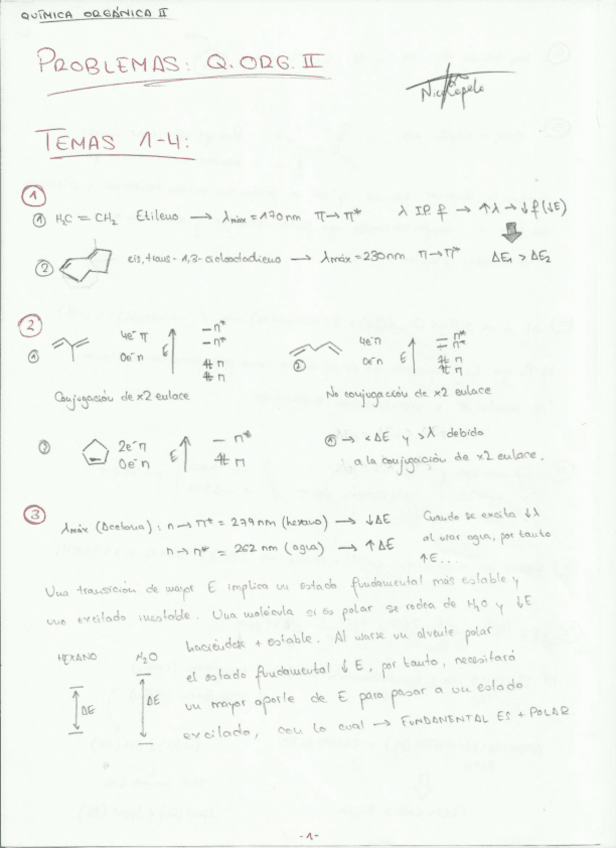 QUÍMICA ORGÁNICA II
PROBLEMAS: Q.ORG.II
TEMAS 1-4:
1
① H₂C = CH₂ Etileno → λmáx = 170 nm π→π* λ I.P. f → ↑λ → ↓f (↓E)
② cis,trans-1,3-ciclooctadieno → λmáx = 230 nm π→π* ΔE₁ > ΔE₂
2
① 4e⁻ π E — π*
0e⁻ n — π*
π
π
Conjugación de x2 enlace
② 4e⁻ π E π*
0e⁻ n π*
π
π
No conjugación de x2 enlace
③ 2e⁻ π E — π*
0e⁻ n π
① → <ΔE y >λ debido
a la conjugación de x2 enlace.
3
λmáx (Acetona): n→π* = 279 nm (hexano) → ↓ΔE
n→π* = 262 nm (agua) → ↑ΔE
Cuando se excita ↓λ
al usar agua, por tanto
↑E...
Una transición de mayor E implica un estado fundamental más estable y
uno excitado inestable. Una molécula si es polar se rodea de H₂O y ↓E
haciéndola + estable. Al usarse un polar
el estado fundamental ↓E, por tanto, necesitará
un mayor aporte de E para pasar a un estado
excitado, con lo cual → FUNDAMENTAL ES + POLAR
HEXANO H₂O
ΔE ΔE
-1-